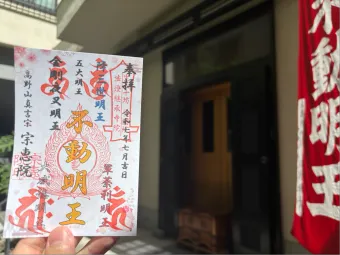 奉拝
令和七年七月吉日
降三世明王
五大明王
金剛夜叉明王
軍荼利明王
不動明王
高野山真言宗
宗恵院
不動明王